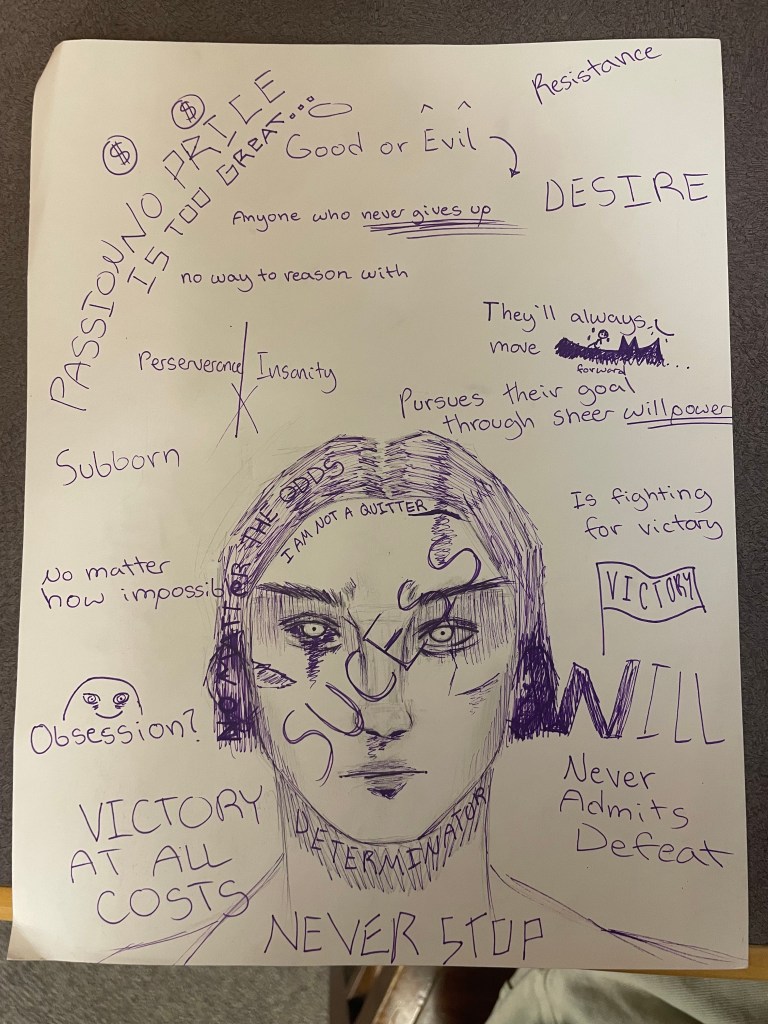 Resistance
$ $
PASSION NO PRICE
IS TOO GREAT...
Good or Evil
DESIRE
Anyone who never gives up
no way to reason with
They'll always
move
forward
...
Perserverance Insanity
Pursues their goal
through sheer willpower
Subborn
Is fighting
for victory
NO MATTER THE ODDS
I AM NOT A QUITTER
No matter
how impossible
VICTORY
SUCESS
Obsession?
WILL
Never
Admits
Defeat
VICTORY
AT ALL
COSTS
DETERMINATOR
NEVER STOP